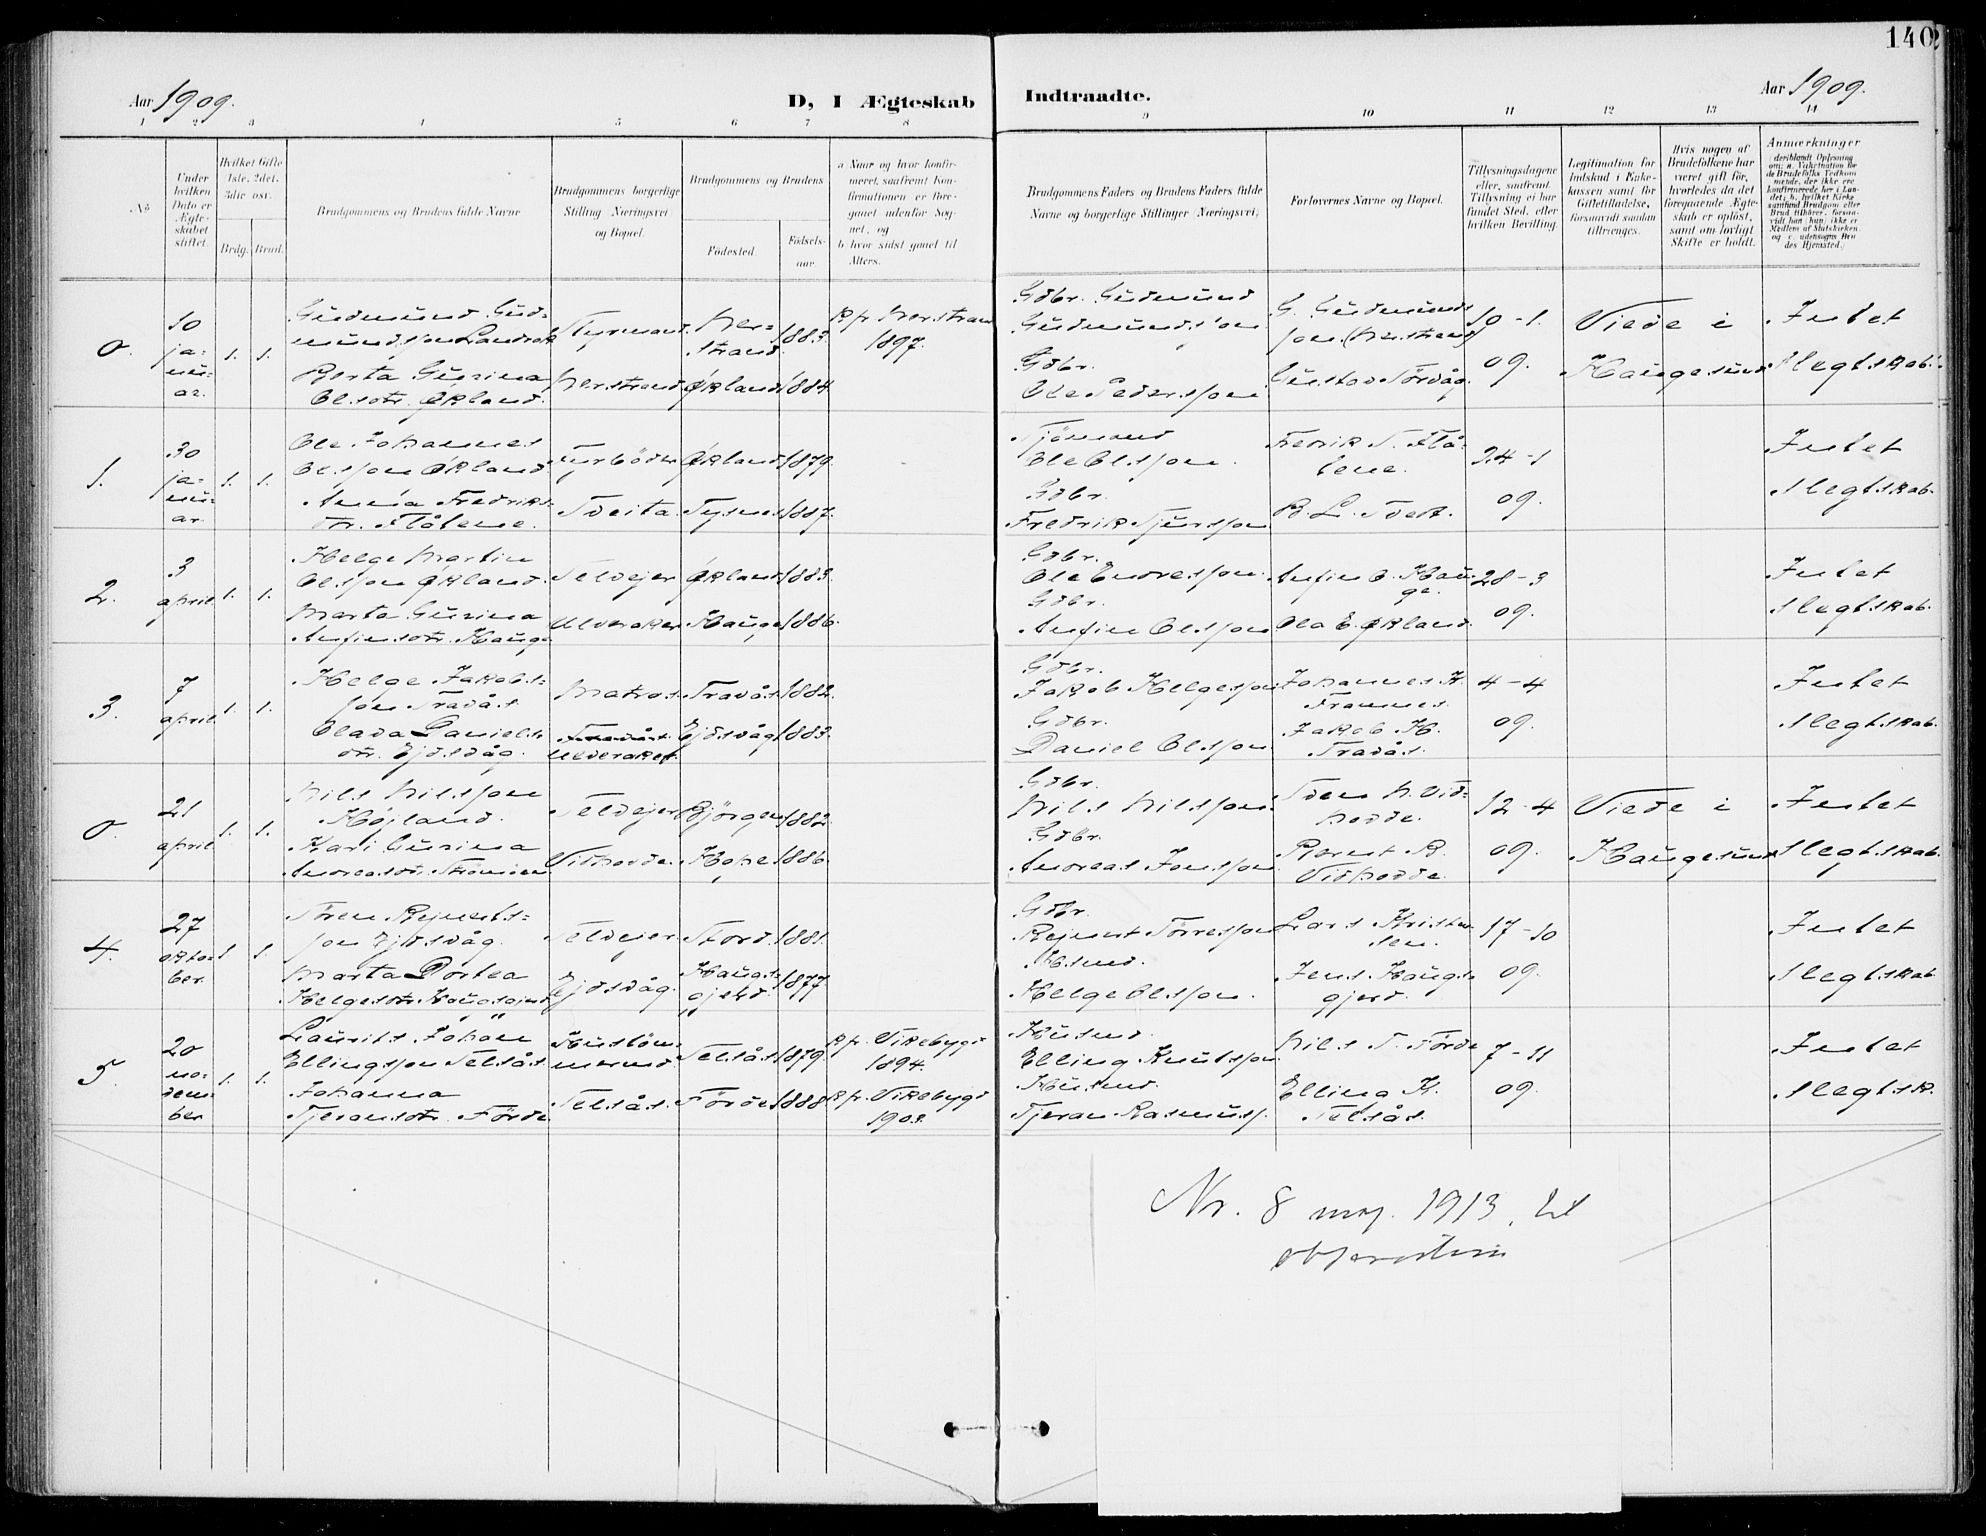 140
Aar 1909.
D, I Ægteskab Indtraadte.
Aar 1909.
1 2 3 4 5 6 7 8 9 10 11 12 13 14
No
Under hvilken Dato er Ægteskabet stiftet.
Hvilket Gifte 1ste, 2det, 3die osv.
Brdg. Brud.
Brudgommens og Brudens fulde Navne
Brudgommens borgerlige Stilling Næringsvei og Bopæl.
Brudgommens og Brudens
Fødested.
Fødselsaar.
a Naar og hvor konfirmeret, saafremt Konfirmationen er foregaaet udenfor Sognet, og
b hvor sidst gaaet til Alters.
Brudgommens Faders og Brudens Faders fulde Navne og borgerlige Stillinger Næringsvei,
Forlovernes Navne og Bopæl.
Tillysningsdagene eller, saafremt Tillysning ei har fundet Sted, efter hvilken Bevilling.
Legitimation for Indskud i Enkekassen samt for Giftetilladelse, forsaavidt saadan tiltrænges.
Hvis nogen af Brudefolkene har været gift før, hvorledes da det foregaaende Ægteskab er opløst, samt om lovligt Skifte er holdt.
Anmærkninger
0. 10 januar. 1. 1.
Gudmund Gudmundsson
Berta Gurina Olsdtr. Økland.
Styrmand Nerstrand
Nerstrand. 1883.
Økland 1884.
Kfr. Nerstrand 1897.
Gdbr. Gudmund Gudmundsson
Gdbr. Ole Pedersson
G. Gudmundsson (Nerstrand)
Gustav
10-1. 09.
Viede i Haugesund
Intet Slegtskab.
1. 30 januar. 1. 1.
Ole Johannes Olsson Økland
Anna Fredriksdtr. Flåtene.
Fyrbøder Tveita.
Økland 1879.
Tysnes 1887.
Sjömand Ole Olsson.
Gdbr. Fredrik
Fredrik T. Flåtene.
B. L. Tveit.
24-1 09.
Intet Slegtskab.
2. 3 april. 1. 1.
Helge Martin Olsson Økland.
Marta Gurina Anfinsdtr. Hauge
Selvejer Alveraker
Økland 1883.
Hauge 1886.
Gdbr. Ole Endresson.
Gdbr. Anfin Olsson
Anfin O. Hauge.
Ola E. Økland.
28-3 09.
Intet Slegtskab.
3. 7 april. 1. 1.
Helge Jakobsson Travås
Olava Danielsdtr. Ejdsvåg.
Matros Travås Alveraker.
Travås 1882.
Ejdsvåg 1883.
Gdbr. Jakob Helgesson
Gdbr. Daniel Olsson.
Johannes H. Framnes.
Jakob H. Travås.
4-4 09.
Intet Slegtskab.
0. 21 april. 1. 1.
Nils Nilsson Højland.
Kari Gurina Andreasdtr.
Selvejer Vihovde.
Bjørgen 1882.
Hope 1886.
Gdbr. Nils Nilsson.
Gdbr. Andreas Jonsson
Sven N. Vihovde.
Bernt B. Vihovde.
12-4 09.
Viede i Haugesund
Intet Slegtskab.
4. 27 oktober. 1. 1.
Sören Rejnertsson Ejdsvåg.
Marta Dortea Helgesdtr. Haugsgjerd
Selvejer Ejdsvåg.
Stord. 1881.
Haugsgjerd. 1877
Gdbr. Rejnert
Husmd. Helge Olsson.
Lars Kristensen.
Jens Haugsgjerd.
17-10 09.
Intet Slegtskab
5. 20 november 1. 1.
Laurits Johan Ellingsson Selsås
Johanna Tjeransdtr. Förde
Hustömmermd. Selsås.
Selsås 1879.
Förde 1888
Kfr. Vikebygd 1894.
Kfr. Vikebygd
Husmd. Elling Knutsson
Husmd. Tjeran Rasmuss.
Nils T. Förde
Elling K. Selsås.
7-11 09.
Intet Slegtsk.
Nr. 8 1913